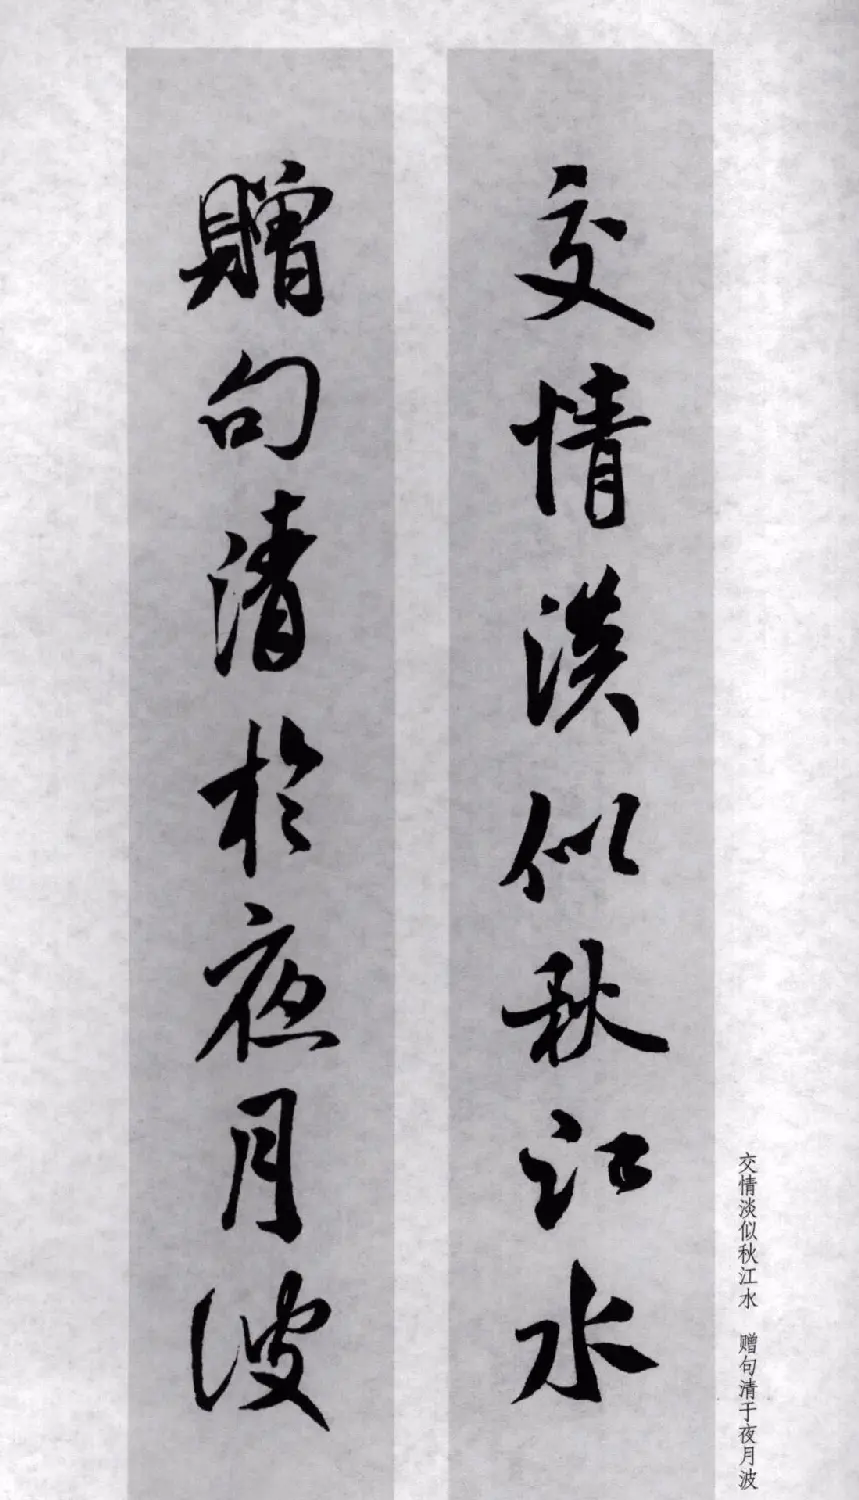 交情淡似秋江水
贈句清於夜月波
交情淡似秋江水 赠句清于夜月波